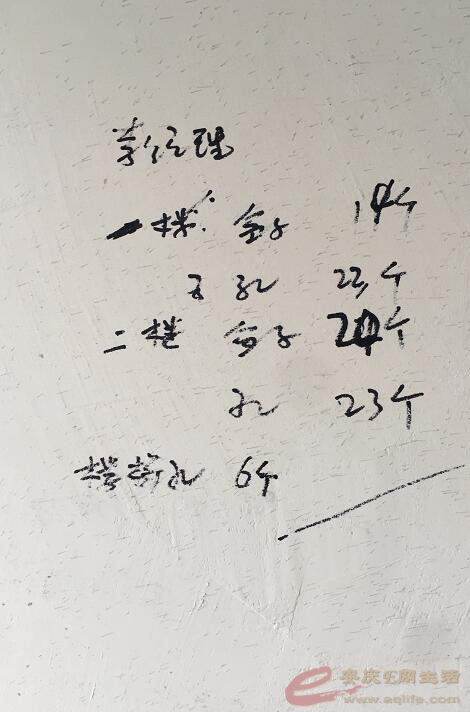 经理
一楼 盒子 19个
孔 23个
二楼 盒子 24个
孔 23个
楼梯孔 6个
安庆E网生活
www.aqlife.com